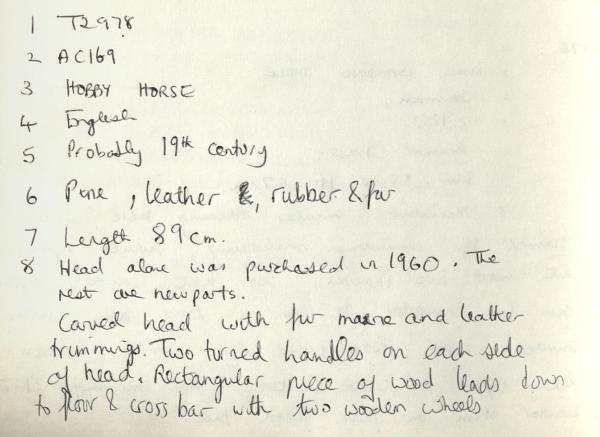 1 T2978
2 AC169
3 HOBBY HORSE
4 English
5 Probably 19th century
6 Pine, leather &, rubber & fur
7 Length 89cm.
8 Head alone was purchased in 1960. The
rest are new parts.
Carved head with fur mane and leather
trimmings. Two turned handles on each side
of head. Rectangular piece of wood leads down
to floor & cross bar with two wooden wheels